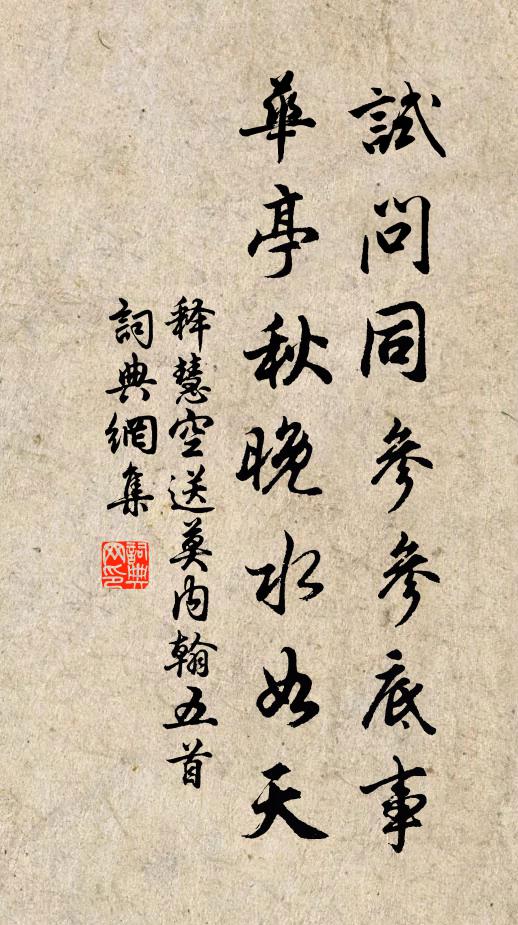 試問同參參底事
華亭秋晚水如天
释慧空送莫内翰五首
詞典網集
詞典
网印